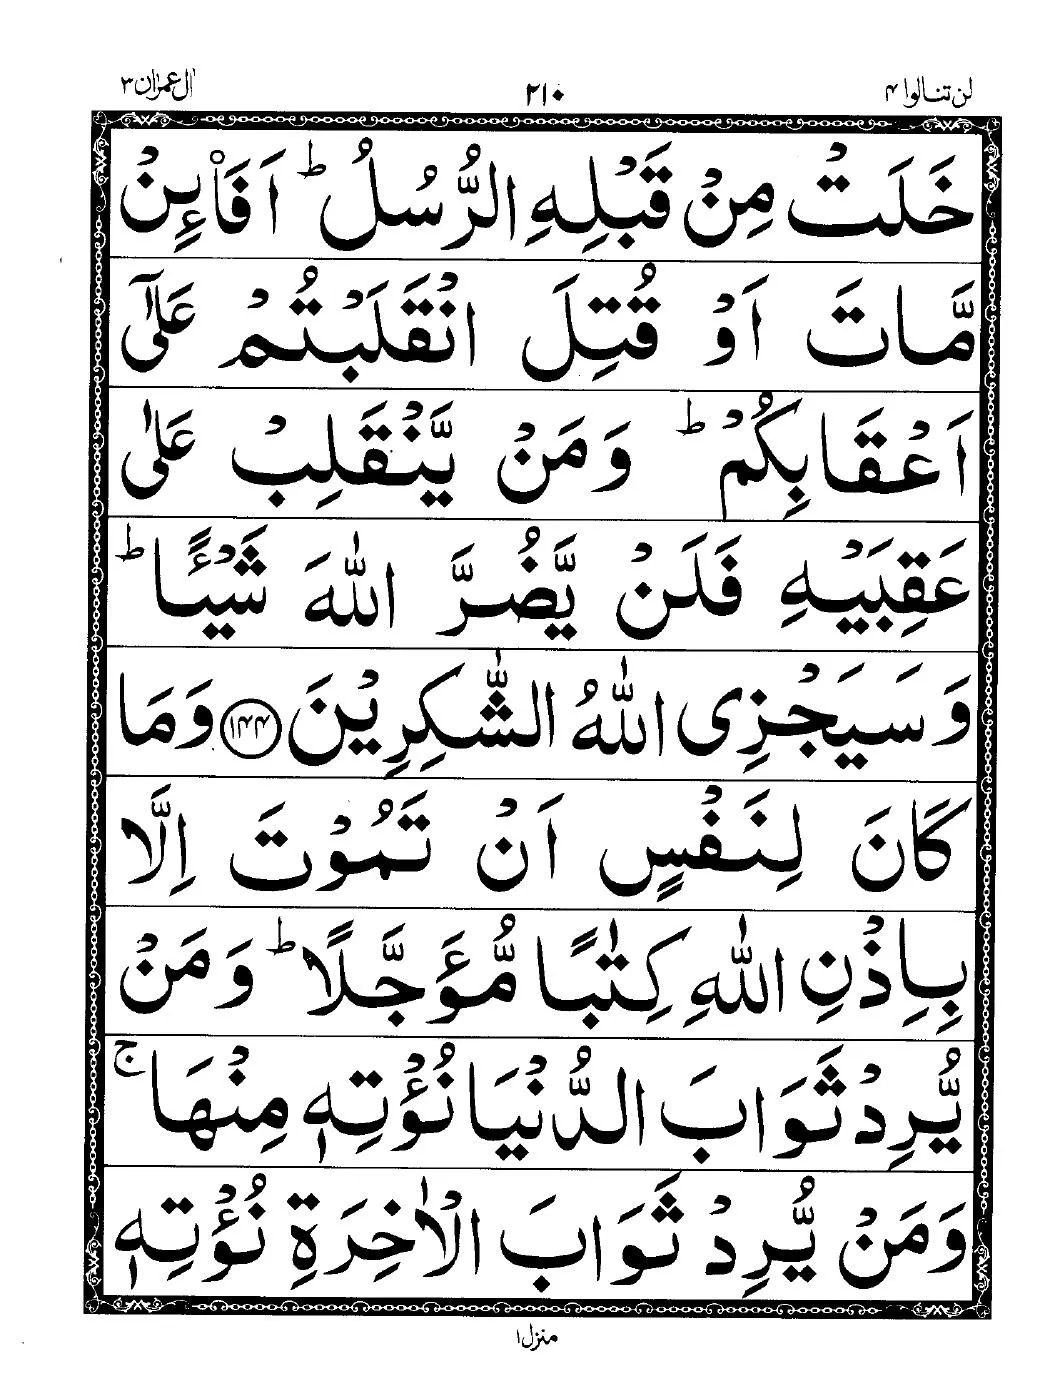 لن تنالوا ۴
۲۱۰
اٰل عمرٰن ۳
خَلَتْ مِنْ قَبْلِهِ الرُّسُلُ ؕ اَفَا۠ئِنْ
مَّاتَ اَوْ قُتِلَ انْقَلَبْتُمْ عَلٰۤى
اَعْقَابِكُمْ ؕ وَمَنْ يَّنْقَلِبْ عَلٰى
عَقِبَيْهِ فَلَنْ يَّضُرَّ اللّٰهَ شَيْـًٔا ؕ
وَسَيَجْزِى اللّٰهُ الشّٰكِرِيْنَ ﴿۱۴۴﴾ وَمَا
كَانَ لِنَفْسٍ اَنْ تَمُوْتَ اِلَّا
بِاِذْنِ اللّٰهِ كِتٰبًا مُّؤَجَّلًا ؕ وَمَنْ
يُّرِدْ ثَوَابَ الدُّنْيَا نُؤْتِهٖ مِنْهَا ۚ
وَمَنْ يُّرِدْ ثَوَابَ الْاٰخِرَةِ نُؤْتِهٖ
منزل ۱